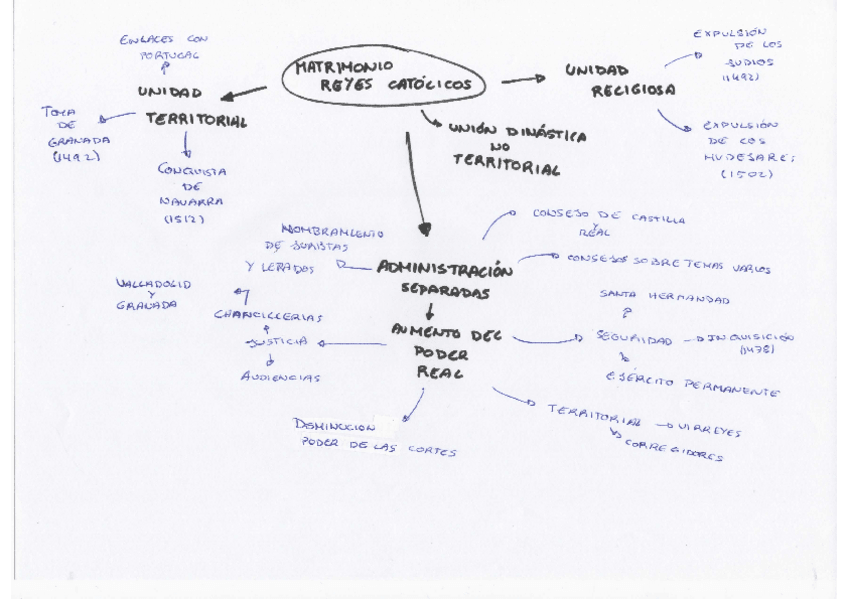 MATRIMONIO
REYES CATÓLICOS
ENLACES CON
PORTUGAL
UNIDAD
TERRITORIAL
TOMA
DE
GRANADA
(1492)
CONQUISTA
DE
NAVARRA
(1512)
UNIÓN DINÁSTICA
NO
TERRITORIAL
UNIDAD
RELIGIOSA
EXPULSIÓN
DE LOS
JUDIOS
(1492)
EXPULSIÓN
DE LOS
MUDEJARES
(1502)
NOMBRAMIENTO
DE JURISTAS
Y LETRADOS
ADMINISTRACIÓN
SEPARADAS
CONSEJO DE CASTILLA
Y
REAL
CONSEJOS SOBRE TEMAS VARIOS
AUMENTO DEL
PODER
REAL
VALLADOLID
Y
GRANADA
CHANCILLERIAS
JUSTICIA
AUDIENCIAS
SANTA HERMANDAD
SEGURIDAD
INQUISICIÓN
(1478)
EJÉRCITO PERMANENTE
DISMINUCION
PODER DE LAS CORTES
TERRITORIAL
VIRREYES
CORREGIDORES